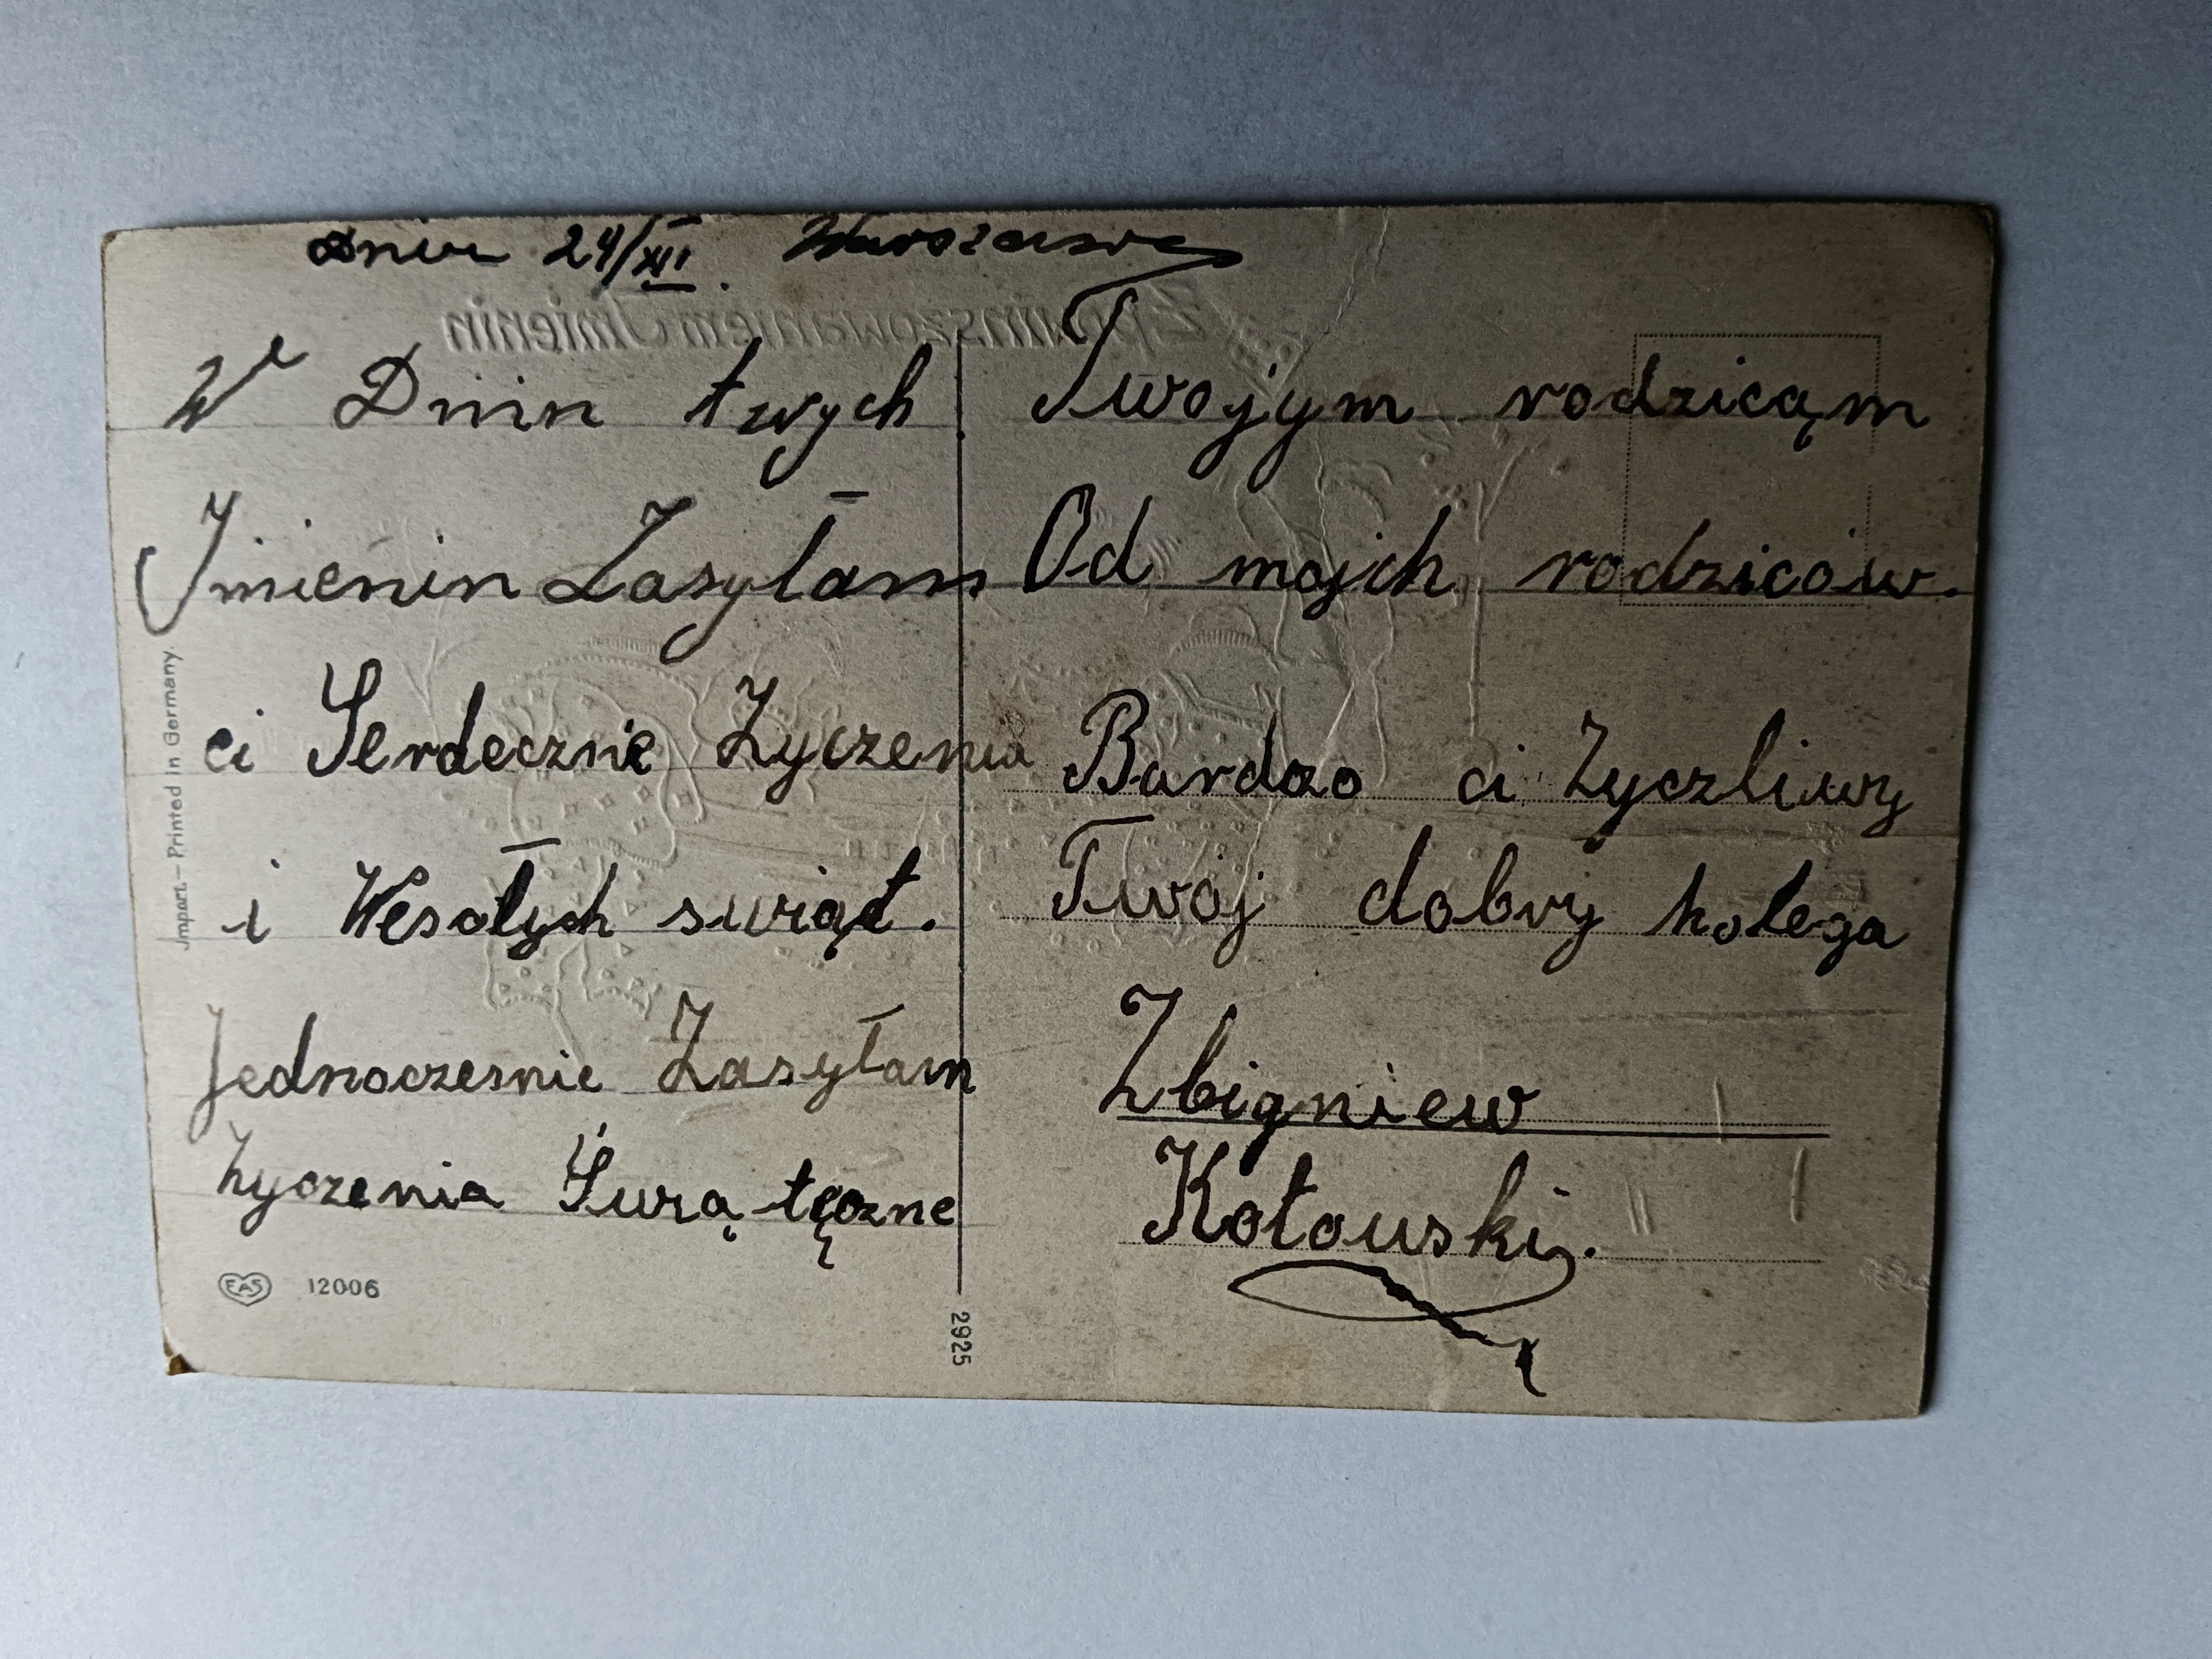 Dnia 24/XII. Warszawa
Z powinszowaniem Imienin
W Dniu twych
Imienin Zasyłam
ci Serdecznie Zyczenia
i Wesołych swiąt.
Jednoczesnie Zasyłam
Zyczenia Swią tęczne
Twojym rodzicąm
Od mojch rodziców.
Bardzo ci Zyczliwy
Twoj dobry kolega
Zbigniew
Kotowski.
Import.—Printed in Germany.
EAS 12006
2925